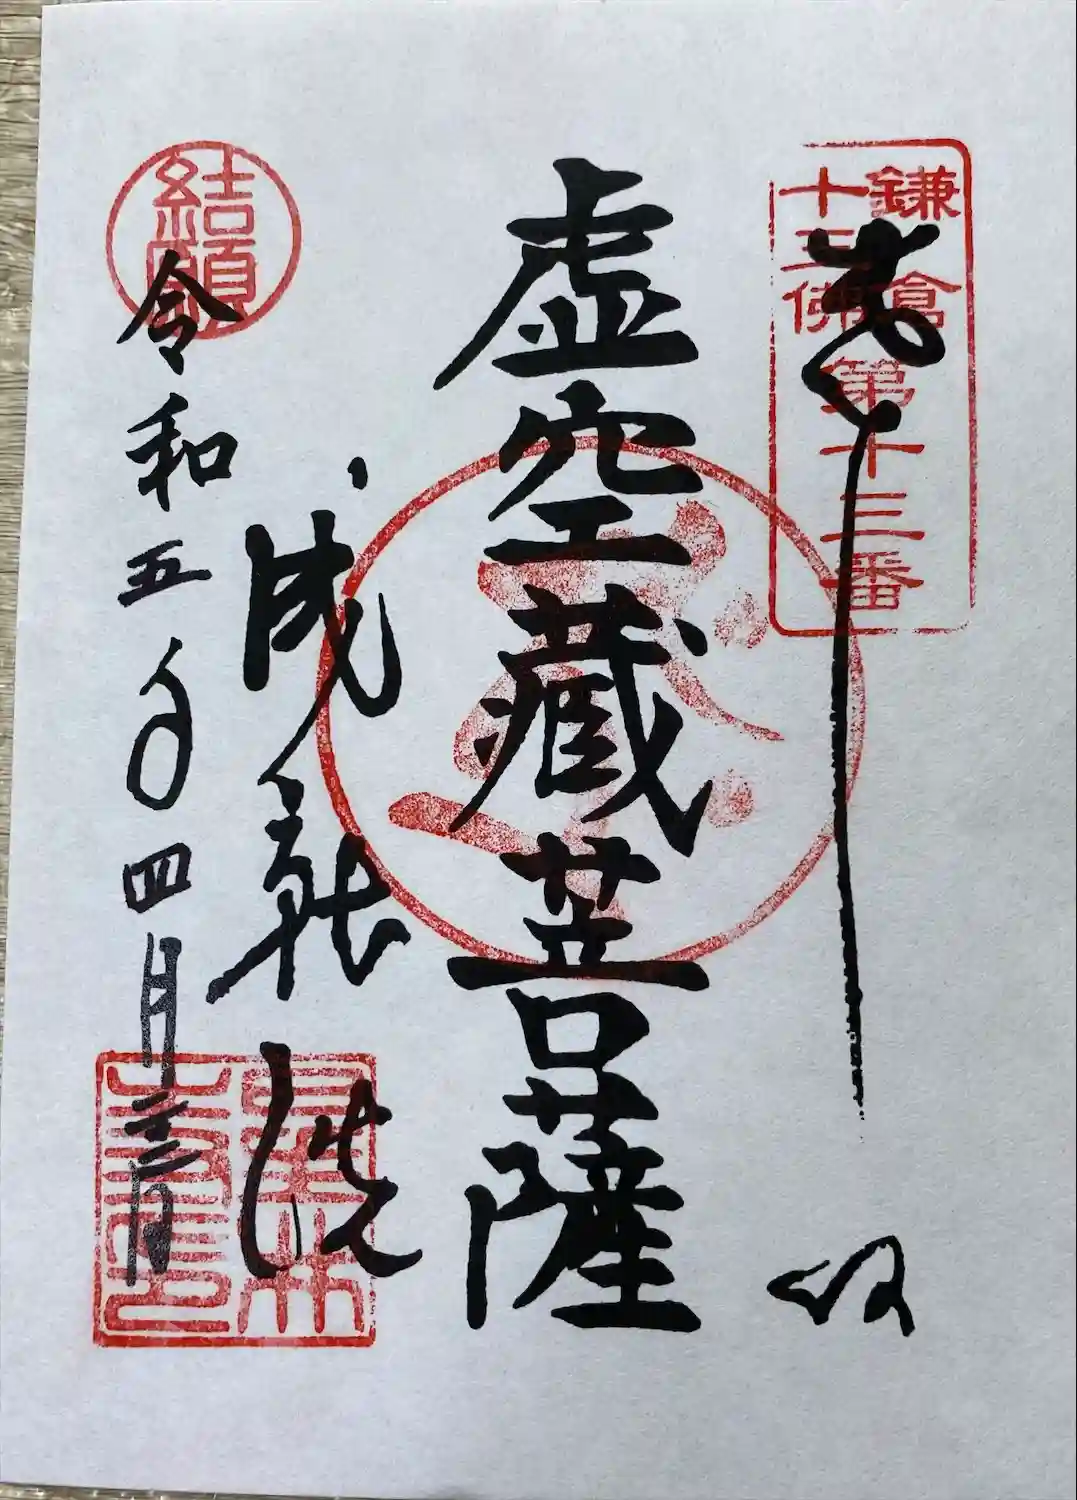 鎌倉
十三佛
第十三番
奉拝
虚空蔵菩薩
成就院
結願
令和五年四月三日